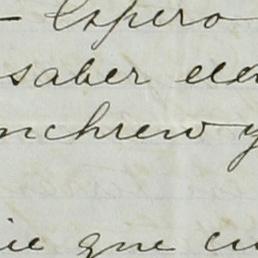 - Espero
saber el
nchrew y
ie que cu